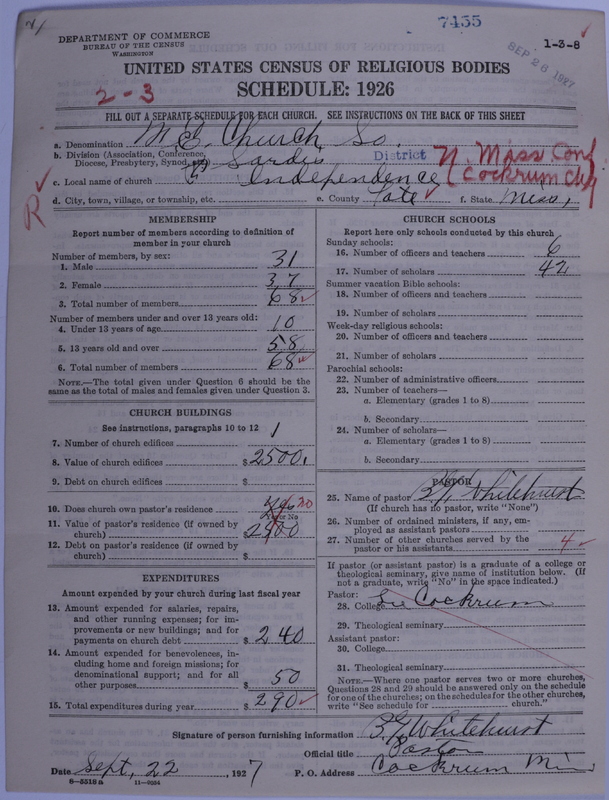 7455
DEPARTMENT OF COMMERCE
BUREAU OF THE CENSUS
WASHINGTON
1-3-8
SEP 28 1927
UNITED STATES CENSUS OF RELIGIOUS BODIES
SCHEDULE: 1926
2-3
FILL OUT A SEPARATE SCHEDULE FOR EACH CHURCH. SEE INSTRUCTIONS ON THE BACK OF THIS SHEET
a. Denomination M E Church So.
b. Division (Association, Conference, Diocese, Presbytery, Synod, Sardis District N. Miss Conf
c. Local name of church Independence (Cockrum Chg
d. City, town, village, or township, etc. e. County Tate f. State Miss,
R
MEMBERSHIP
Report number of members according to definition of member in your church
Number of members, by sex:
1. Male 31
2. Female 37
3. Total number of members 68
Number of members under and over 13 years old:
4. Under 13 years of age 10
5. 13 years old and over 58
6. Total number of members 68
NOTE.—The total given under Question 6 should be the same as the total of males and females given under Question 3.
CHURCH BUILDINGS
See instructions, paragraphs 10 to 12
7. Number of church edifices 1
8. Value of church edifices $2500.
9. Debt on church edifices $
10. Does church own pastor's residence Yes no
Yes or No
11. Value of pastor's residence (if owned by church) $
12. Debt on pastor's residence (if owned by church) $
EXPENDITURES
Amount expended by your church during last fiscal year
13. Amount expended for salaries, repairs, and other running expenses; for improvements or new buildings; and for payments on church debt $240
14. Amount expended for benevolences, including home and foreign missions; for denominational support; and for all other purposes $50
15. Total expenditures during year $290
CHURCH SCHOOLS
Report here only schools conducted by this church
Sunday schools:
16. Number of officers and teachers 6
17. Number of scholars 42
Summer vacation Bible schools:
18. Number of officers and teachers
19. Number of scholars
Week-day religious schools:
20. Number of officers and teachers
21. Number of scholars
Parochial schools:
22. Number of administrative officers
23. Number of teachers—
a. Elementary (grades 1 to 8)
b. Secondary
24. Number of scholars—
a. Elementary (grades 1 to 8)
b. Secondary
PASTOR
25. Name of pastor Whitehurst
(If church has no pastor, write "None")
26. Number of ordained ministers, if any, employed as assistant pastors
27. Number of other churches served by the pastor or his assistants 4
If pastor (or assistant pastor) is a graduate of a college or theological seminary, give name of institution below. (If not a graduate, write "No" in the space indicated.)
Pastor:
28. College See Cockrum
29. Theological seminary
Assistant pastor:
30. College
31. Theological seminary
NOTE.—Where one pastor serves two or more churches, Questions 28 and 29 should be answered only on the schedule for one of the churches; on the schedules for the other churches, write "See schedule for church."
Signature of person furnishing information Whitehurst
Official title Pastor
Date Sept, 22, 1927 P. O. Address Cockrum Miss
8-5518a 11-9054